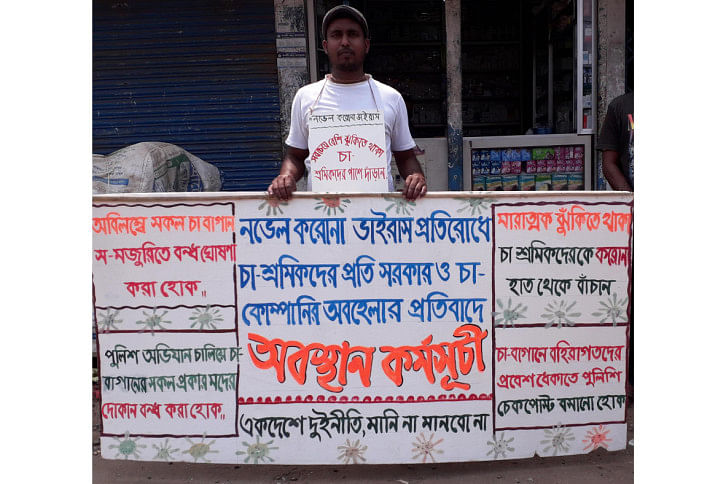 নভেল করোনা ভাইরাস
সবচেয়ে বেশি ঝুঁকিতে থাকা
চা-
শ্রমিকদের পাশে দাঁড়ান
অবিলম্বে সকল চা বাগান
স-মজুরিতে বন্ধ ঘোষণা
করা হোক..
পুলিশ অভিযান চালিয়ে চা-
বাগানের সকল প্রকার মদের
দোকান বন্ধ করা হোক..
নভেল করোনা ভাইরাস প্রতিরোধে
চা-শ্রমিকদের প্রতি সরকার ও চা-
কোম্পানির অবহেলার প্রতিবাদে
অবস্থান কর্মসূচী
একদেশে দুইনীতি, মানি না মানবো না
মারাত্মক ঝুঁকিতে থাকা
চা শ্রমিকদেরকে করোনা
হাত থেকে বাঁচান
চা-বাগানে বহিরাগতদের
প্রবেশ ঠেকাতে পুলিশি
চেকপোস্ট বসানো হোক